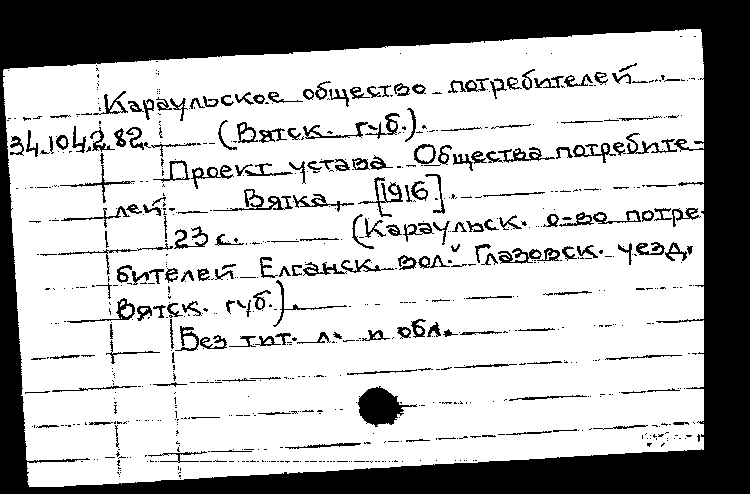 Караульское общество потребителей.
34.104.2.82. (Вятск. губ.).
Проект устава Общества потребите-
лей. Вятка, [1916].
23 с. (Караульск. о-во потре-
бителей Елганск. вол. Глазовск. уезд,
Вятск. губ.).
Без тит. л. и обл.